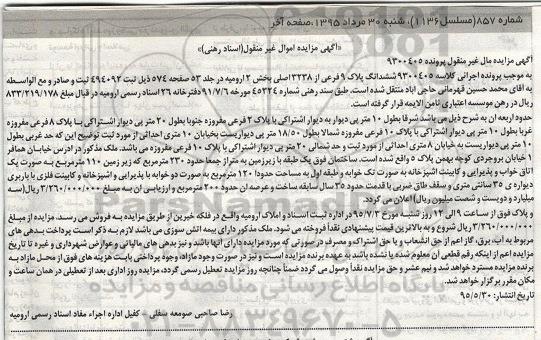 شماره ۸۵۷(مسلسل۱۱۳۶)، شنبه ۳۰ مرداد ۱۳۹۵،صفحه آخر
«آگهی مزایده اموال غیر منقول(اسناد رهنی)»
آگهی مزایده مال غیر منقول پرونده ۹۳۰۰۴۰۵
به موجب پرونده اجرائی کلاسه ۹۳۰۰۴۰۵ ششدانگ پلاک ۹ فرعی از ۳۲۳۸ اصلی بخش ۲ ارومیه در جلد ۵۳ صفحه ۵۷۴ ذیل ثبت ۴۹۴۰۹۲ ثبت و صادر و مع الواسطه
به آقای محمد حسین قهرمانی حاجی آباد منتقل شده است. طبق سند رهنی شماره ۴۵۳۲۴ مورخه ۹۱/۷/۶ دفترخانه ۲۶ اسناد رسمی ارومیه در قبال مبلغ ۸۳۳/۲۱۹/۱۷۸
ریال در رهن موسسه اعتباری ثامن الایمه قرار گرفته است.
حدود اربعه ان به شرح ذیل می باشد شرقا بطول ۱۰ متر پی دیوار به دیوار اشتراکی با پلاک ۲ فرعی مفروزه جنوبا بطول ۲۰ متر پی دیوار اشتراکی با پلاک ۸ فرعی مفروزه
غربا بطول ۱۰ متر پی دیوار اشتراکی با پلاک ۱۰ فرعی مفروزه شمالا بطول ۱۸/۵۰ متر پی دیواریست بخیابان ۱۰ متری احداثی از مورد ثبت توضیح این که حد غربی بطول
۱۰ متر پی دیواریست به خیابان ۸ متری احداثی از مورد ثبت و حد شمالی ۲۰ متر پی دیوار اشتراکی با پلاک ۱۰ فرعی مفروزه می باشد. ملک مذکور در ادرس خیابان همافر
۱ خیابان بروجردی کوچه بهمن پلاک ۵ واقع شده است. ساختمان فوق یک طبقه با زیرزمین به متراژ جمعا حدود ۲۳۰ مترمربع که زیر زمین ۱۱۰ مترمربع به صورت یک
اتاق خواب و پذیرایی و کابینت اشپزخانه به صورت تک خوابه و طبقه اول به مساحت ۱۲۰ مترمربع به صورت دو خوابه با پذیرایی و اشپزخانه و کابینت فلزی با باربری
دیواره ی ۳۵ سانتی متری و سقف طاق ضربی با قدمت حدود ۳۵ سال سابقه ساخت و عرصه ان حدود ۲۰۰ مترمربع و ارزیابی ان به مبلغ ۳/۲۶۰/۰۰۰/۰۰۰ ریال(سه
میلیارد و دویست و شصت میلیون ریال) اعلام می گردد.
و پلاک فوق از ساعت ۹ الی ۱۲ روز شنبه مورخ ۹۵/۷/۳ در اداره ثبت اسناد و املاک ارومیه واقع در فلکه خیرین از طریق مزایده به فروش می رسد. مزایده از مبلغ
۳/۲۶۰/۰۰۰/۰۰۰ ریال شروع و به بالاترین قیمت پیشنهادی نقدا فروخته می شود. ملک مذکور دارای بیمه اتش سوزی می باشد لازم به ذکر است پرداخت بدهی های
مربوط به اب، برق، گاز اعم از حق انشعاب و یا حق اشتراک و مصرف در صورتی که مورد مزایده دارای انها باشد و نیز بدهی های مالیاتی و عوارض شهرداری و غیره تا تاریخ
مزایده اعم از اینکه رقم قطعی ان معلوم شده یا نشده باشد به عهده برنده مزایده است و نیز در صورت وجود مازاد، وجوه پرداختی بابت هزینه های فوق از محل مازاد به
برنده مزایده مسترد خواهد شد و نیم عشر و حق مزایده نقدا وصول می گردد ضمناً چنانچه روز مزایده تعطیل رسمی گردد، مزایده روز اداری بعد از تعطیلی در همان ساعت و
مکان مقرر برگزار خواهد شد.
تاریخ انتشار: ۹۵/۵/۳۰
رضا صاحبی صومعه سفلی - کفیل اداره اجراء مفاد اسناد رسمی ارومیه
ParsNamadData
پایگاه اطلاع رسانی مناقصه و مزایده